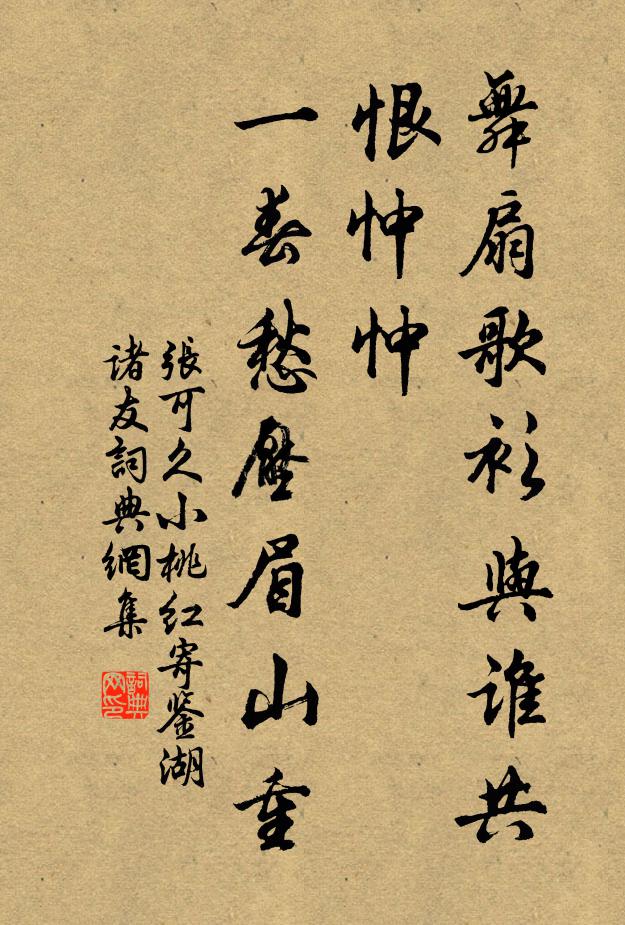 舞扇歌衫與誰共
恨忡忡
一春愁壓眉山重
張可久小桃紅寄鑒湖
諸友詞典網集
詞典
网印